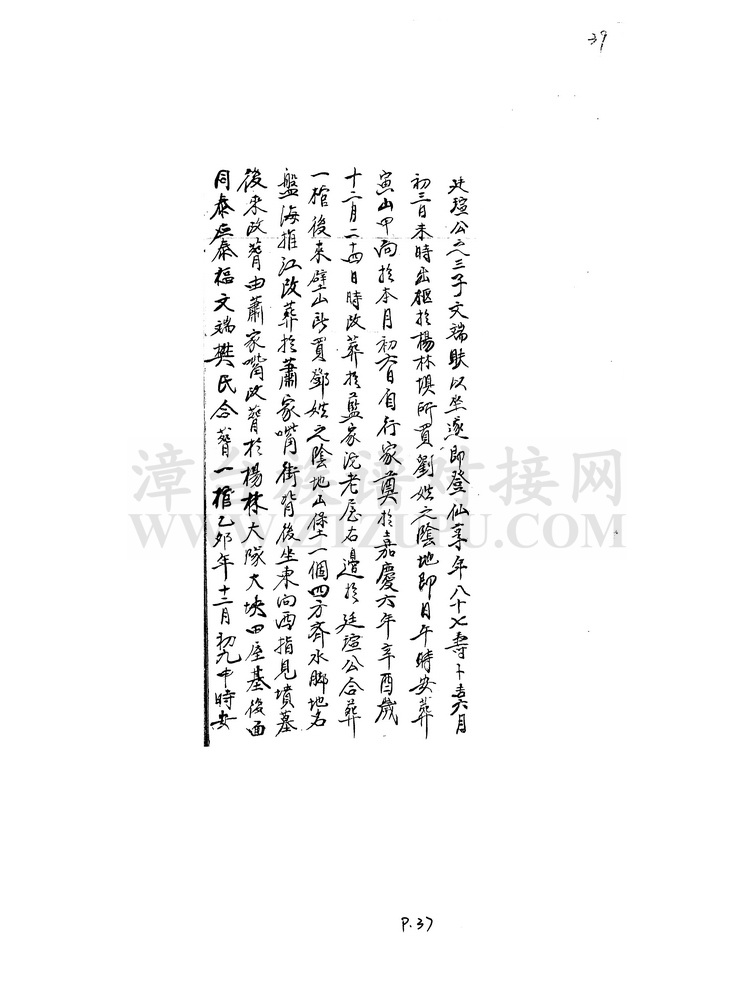 39
廷瑄公之三子文端趺以坐遂即登仙享年八十七壽卜吉六月
初三日未時出柩於楊林垻所買劉姓之陰地即日午時安葬
寅山甲向於本月初六日自行家奠於嘉慶六年辛酉歲
十二月二十四日時改葬於藍家沱老屋右邊於廷瑄公合葬
一棺後來壁山所買鄧姓之陰地山堡一個四方齊水腳地名
盤海推江改葬於蕭家嘴街背後坐東向西指見墳墓
後來改葬由蕭家嘴改葬於楊林大隊大塊田屋基後面
同泰 泰榅文端樊氏合葬一棺乙卯年十二月初九申時安
漳台族谱对接网
WWW.ZTZUPU.COM
P.37